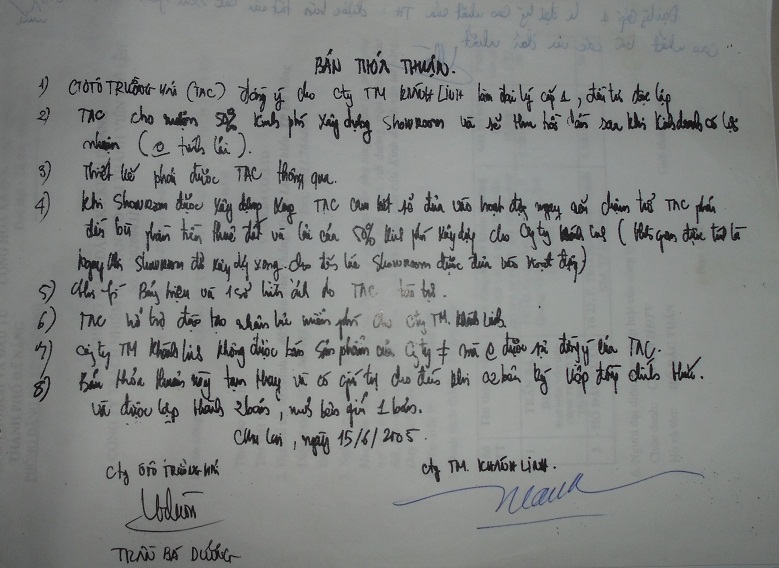 BẢN THỎA THUẬN.
1) CTÔTÔ TRƯỜNG HẢI (TAC) đồng ý cho cty TM KHÁNH LINH làm đại lý cấp 1, đầu tư độc lập
2) TAC cho mượn 50% kinh phí xây dựng Showroom và sẽ thu hồi dần sau khi kinh doanh có lợi
nhuận (0 tính lãi).
3) Thiết kế phải được TAC thông qua.
4) Khi Showroom được xây dựng xong TAC cam kết sẽ đưa vào hoạt động ngay nếu chậm trễ TAC phải
đền bù phần tiền thuê đất và lãi của 50% kinh phí xây dựng cho Cty Khánh Linh (thời gian được tính từ
ngay khi showroom đã xây dựng xong cho đến lúc Showroom được đưa vào hoạt động)
5) Chi phí Bảng hiệu và 1 số hình ảnh do TAC tài trợ.
6) TAC hỗ trợ đào tạo nhân lực miễn phí cho cty TM. Khánh Linh
7) Công ty TM Khánh Linh không được bán sản phẩm của Cty ≠ mà 0 được sự đồng ý của TAC.
8) Bản thỏa thuận này tạm thay và có giá trị cho đến khi 02 bên ký hợp đồng chính thức.
và được lập thành 2 bản, mỗi bên giữ 1 bản.
Chu Lai, ngày 15/6/2005.
Cty ÔTÔ TRƯỜNG HẢI
cty TM. KHÁNH LINH.
TRẦN BÁ DƯƠNG